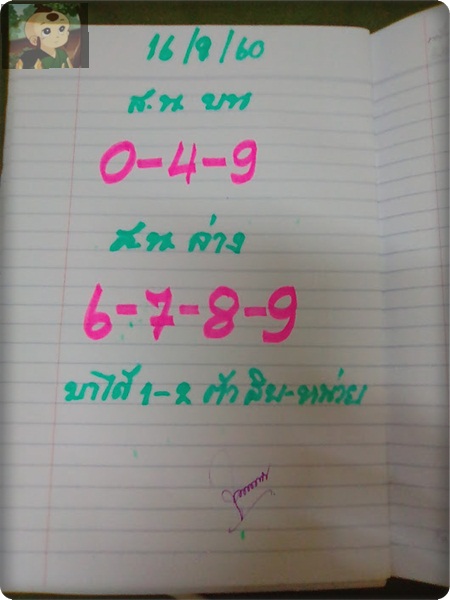 16/8/60
ส.น. บน
0-4-9
ส.น. ล่าง
6-7-8-9
มาได้ 1-2 ตัว สิบ-หน่วย